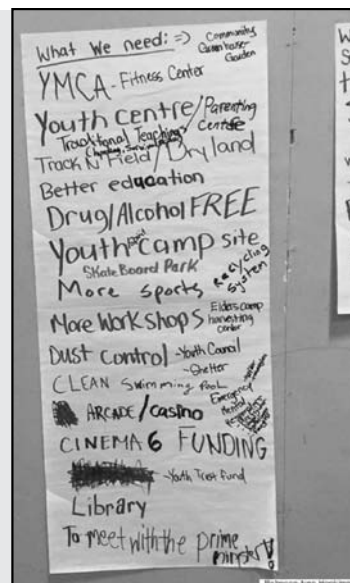 What We need: => Community
Greenhouse
Garden
YMCA - Fitness Center
Youth Centre/Parenting
Centre
Traditional Teachings
Track N Field/Dry land
Better education
Drug/Alcohol FREE
Youth camp site
Skate Board Park
More sports
Recycling
System
More Workshops
Elders camp
harvesting
center
Dust control - Youth Council
- Shelter
CLEAN Swimming Pool
Emergency
ARCADE/casino
CINEMA 6 FUNDING
- Youth Trest Fund
Library
To meet with the prime